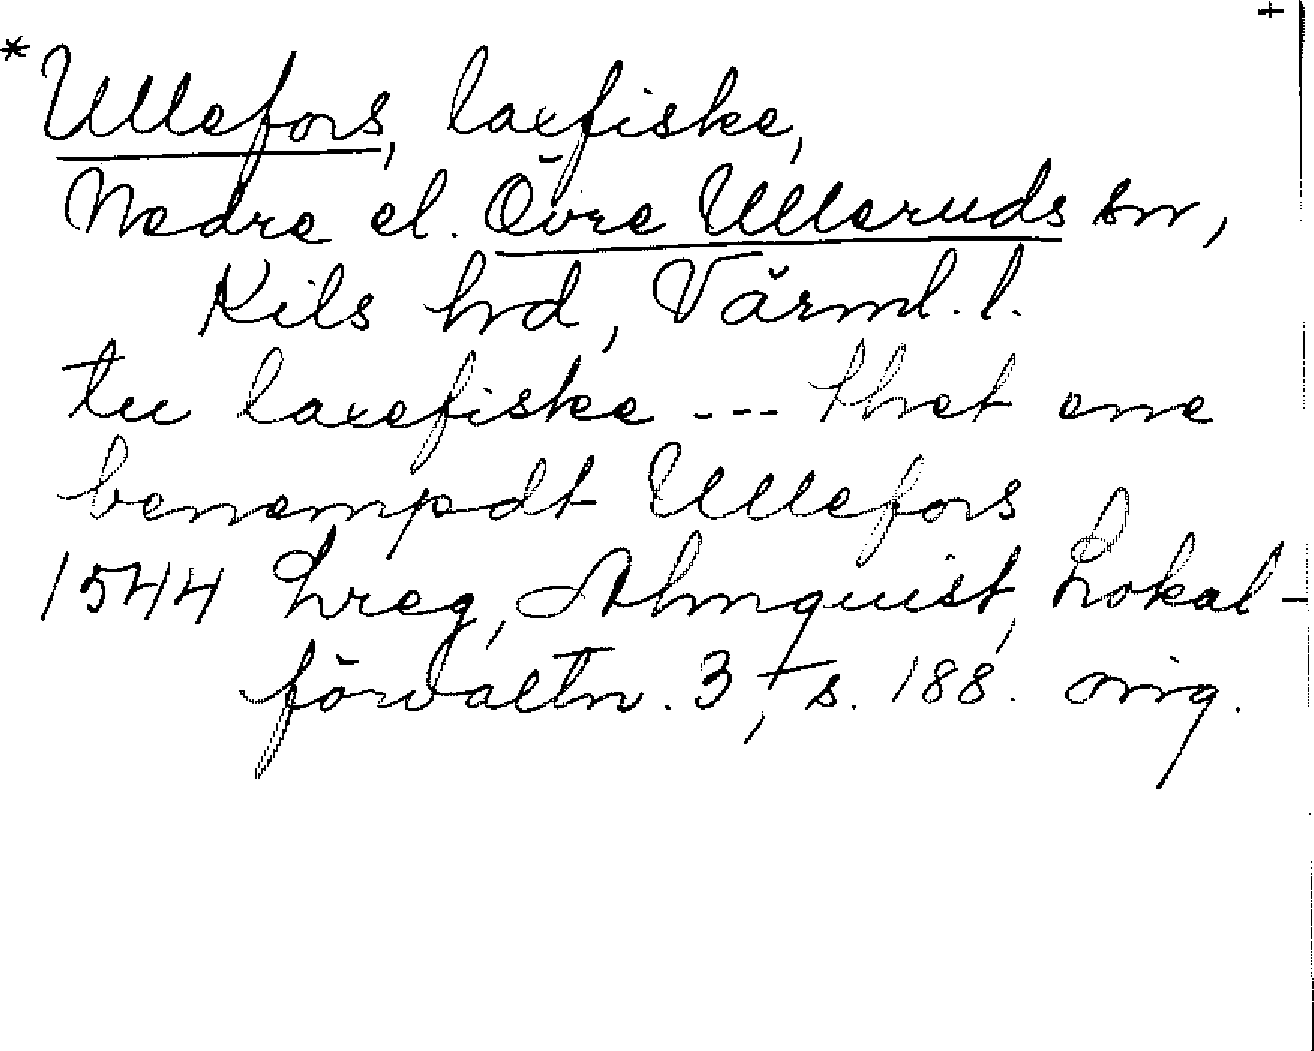 +
*Ullefors, laxfiske,
Nedre el. Övre Ulleruds sn,
Kils hd, Värml. l.
tu laxefiske --- thet ene
benempdt Ullefors
1544 Lreg, Almquist, Lokal-
förvaltn. 3, s. 188. orig.